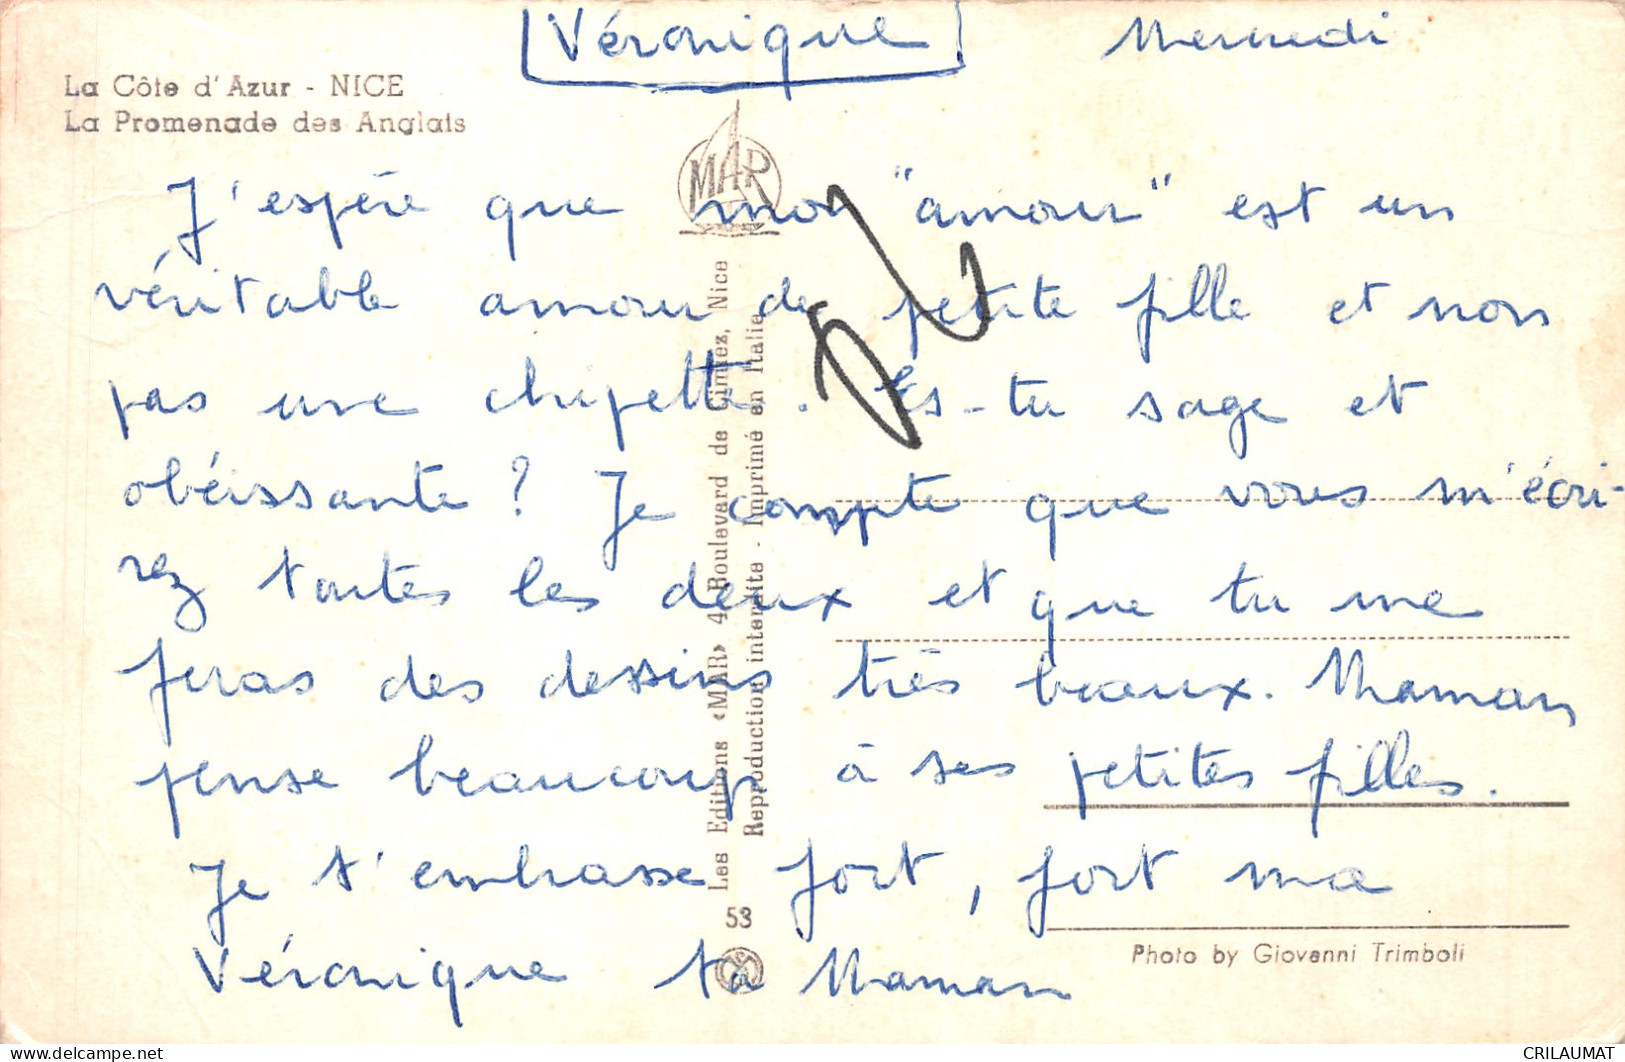 Véronique
Mercredi
La Côte d'Azur - NICE
La Promenade des Anglais
MAR
J'espère que mon "amour" est un
véritable amour de petite fille et non
pas une chipette. Es-tu sage et
obéissante ? Je compte que vous m'écri-
rez toutes les deux et que tu me
feras des dessins très beaux. Maman
pense beaucoup à ses petites filles.
Je t'embrasse fort, fort ma
Véronique ta Maman
Les Editions «MAR» 4, Boulevard de Cimiez, Nice
Reproduction interdite - Imprimé en Italie
53
Photo by Giovanni Trimboli
CRILAUMAT